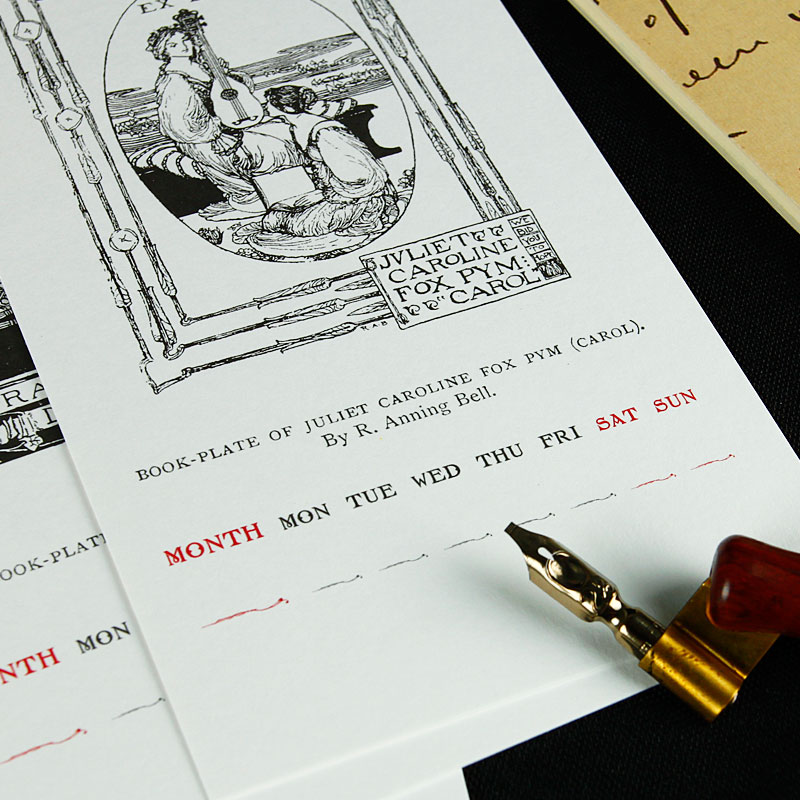 EX
JVLIET
CAROLINE
FOX PYM:
"CAROL"
WE
BID
YOU
TO
R A B
BOOK-PLATE OF JULIET CAROLINE FOX PYM (CAROL).
By R. Anning Bell.
MONTH MON TUE WED THU FRI SAT SUN
RA
OOK-PLATE
NTH MON